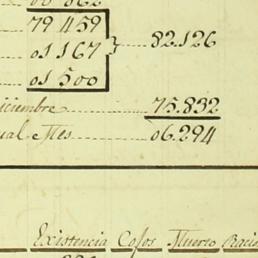 79 459
01 167 82.126
01 500
iciembre 75.832
ual Mes 06.294
Existencia Cofos Muerto Racio